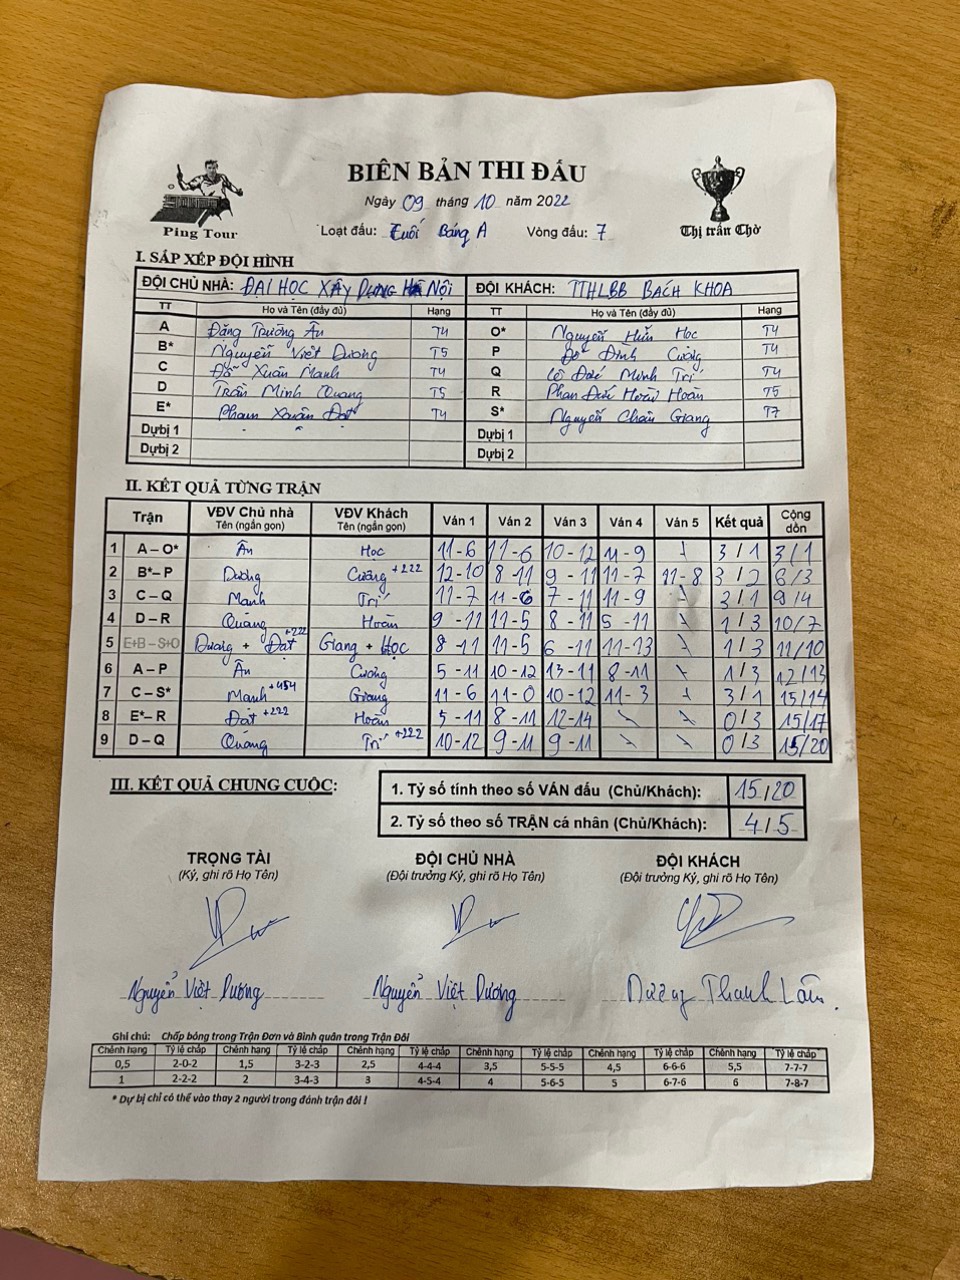 BIÊN BẢN THI ĐẤU
Ngày 09 tháng 10 năm 2022
Ping Tour
Loạt đấu: Cuối Bảng A Vòng đấu: 7
Thị trấn Chờ
I. SẮP XẾP ĐỘI HÌNH
ĐỘI CHỦ NHÀ: ĐẠI HỌC XÂY DỰNG HÀ NỘI ĐỘI KHÁCH: TTHLBB BÁCH KHOA
TT Họ và Tên (đầy đủ) Hạng TT Họ và Tên (đầy đủ) Hạng
A Đặng Trường Ân T4 O* Nguyễn Hữu Học T4
B* Nguyễn Việt Dương T5 P Đỗ Đình Cường T4
C Đỗ Xuân Mạnh T4 Q Lê Đức Minh Trí T4
D Trần Minh Quang T5 R Phan Đức Hoàn T5
E* Phạm Xuân Đạt T4 S* Nguyễn Châu Giang T7
Dự bị 1 Dự bị 1
Dự bị 2 Dự bị 2
II. KẾT QUẢ TỪNG TRẬN
Trận VĐV Chủ nhà Tên (ngắn gọn) VĐV Khách Tên (ngắn gọn) Ván 1 Ván 2 Ván 3 Ván 4 Ván 5 Kết quả Cộng dồn
1 A – O* Ân Học 11-6 11-6 10-12 11-9 3/1 3/1
2 B*– P Dương Cường +222 12-10 8-11 9-11 11-7 11-8 3/2 6/3
3 C – Q Mạnh Trí 11-7 11-6 7-11 11-9 3/1 9/4
4 D – R Quang Hoàn 9-11 11-5 8-11 5-11 1/3 10/7
5 E+B – S+O Dương + Đạt +222 Giang + Học 8-11 11-5 6-11 11-13 1/3 11/10
6 A – P Ân Cường 5-11 10-12 13-11 8-11 1/3 12/13
7 C – S* Mạnh +454 Giang 11-6 11-0 10-12 11-3 3/1 15/14
8 E*– R Đạt +222 Hoàn 5-11 8-11 12-14 0/3 15/17
9 D – Q Quang Trí +222 10-12 9-11 9-11 0/3 15/20
III. KẾT QUẢ CHUNG CUỘC:
1. Tỷ số tính theo số VÁN đấu (Chủ/Khách): 15/20
2. Tỷ số theo số TRẬN cá nhân (Chủ/Khách): 4/5
TRỌNG TÀI ĐỘI CHỦ NHÀ ĐỘI KHÁCH
(Ký, ghi rõ Họ Tên) (Đội trưởng Ký, ghi rõ Họ Tên) (Đội trưởng Ký, ghi rõ Họ Tên)
Nguyễn Việt Dương Nguyễn Việt Dương Dương Thanh Lâm
Ghi chú: Chấp bóng trong Trận Đơn và Bình quân trong Trận Đôi
Chênh hạng Tỷ lệ chấp Chênh hạng Tỷ lệ chấp Chênh hạng Tỷ lệ chấp Chênh hạng Tỷ lệ chấp Chênh hạng Tỷ lệ chấp Chênh hạng Tỷ lệ chấp
0,5 2-0-2 1,5 3-2-3 2,5 4-4-4 3,5 5-5-5 4,5 6-6-6 5,5 7-7-7
1 2-2-2 2 3-4-3 3 4-5-4 4 5-6-5 5 6-7-6 6 7-8-7
* Dự bị chỉ có thể vào thay 2 người trong đánh trận đôi !